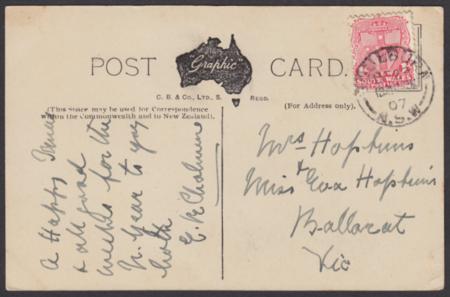 POST CARD.
"Graphic"
C. B. & Co., LTD., S. REGD.
(This Space may be used for Correspondence
within the Commonwealth and to New Zealand).
(For Address only).
A Happy Xmas
& all good
wishes for the
N. Year to you
both
Mrs Hopkins
& Miss Eva Hopkins
Ballarat
Vic
07
N.S.W